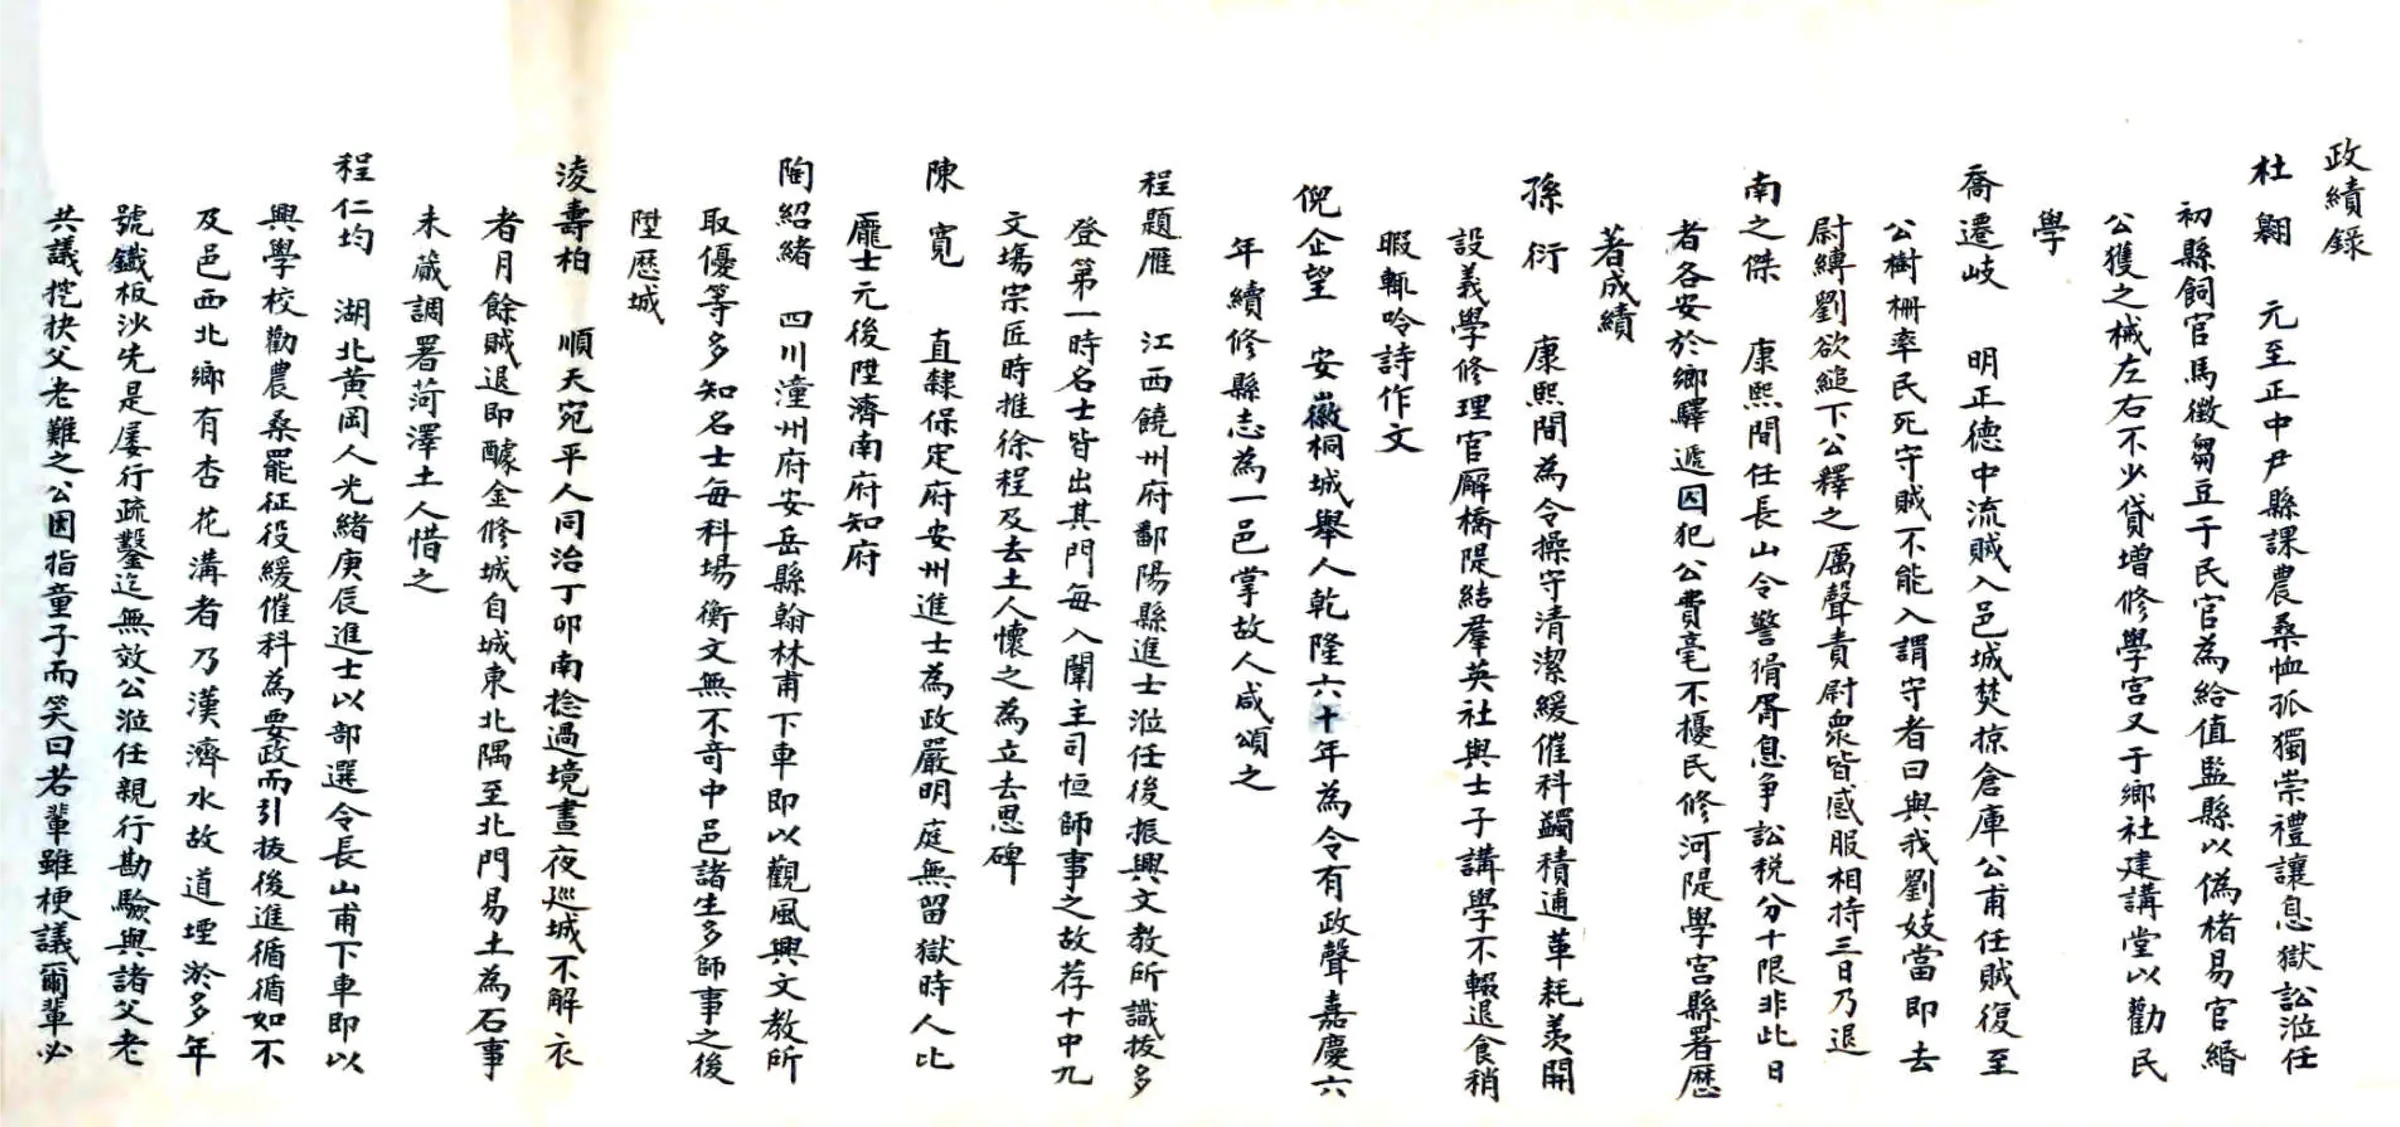 政績錄
杜翺　元至正中尹縣課農桑恤孤獨崇禮讓息獄訟涖任
初縣飼官馬徵芻豆于民官為給值監縣以偽楮易官緡
公獲之械左右不少貸增修學宮又于鄉社建講堂以勸民
學
喬遷岐　明正德中流賊入邑城焚掠倉庫公甫任賊復至
公樹柵率民死守賊不能入謂守者曰與我劉妓當即去
尉縛劉欲縋下公釋之厲聲責尉眾皆感服相持三日乃退
南之傑　康熙間任長山令警猾胥息爭訟稅分十限非此日
者各安於鄉驛遞囚犯公費毫不擾民修河隄學宮縣署歷
著成績
孫衍　康熙間為令操守清潔緩催科蠲積逋革耗羨開
設義學修理官廨橋隄結羣英社與士子講學不輟退食稍
暇輒唫詩作文
倪企望　安徽桐城舉人乾隆六十年為令有政聲嘉慶六
年續修縣志為一邑掌故人咸頌之
程題雁　江西饒州府鄱陽縣進士涖任後振興文教所識拔多
登第一時名士皆出其門每入闈主司恒師事之故荐十中九
文塲宗匠時推徐程及去土人懷之為立去思碑
陳寬　直隸保定府安州進士為政嚴明庭無留獄時人比
龐士元後陞濟南府知府
陶紹緒　四川潼州府安岳縣翰林甫下車即以觀風興文教所
取優等多知名士每科場衡文無不奇中邑諸生多師事之後
陞歷城
淩壽柏　順天宛平人同治丁卯南捻過境晝夜巡城不解衣
者月餘賊退即醵金修城自城東北隅至北門易土為石事
未蕆調署菏澤土人惜之
程仁均　湖北黃岡人光緒庚辰進士以部選令長山甫下車即以
興學校勸農桑罷征役緩催科為要政而引拔後進循循如不
及邑西北鄉有杏花溝者乃漢濟水故道堙淤多年
號鐵板沙先是屢行疏鑿迄無效公涖任親行勘驗與諸父老
共議挖抉父老難之公因指童子而笑曰若輩雖梗議爾輩必